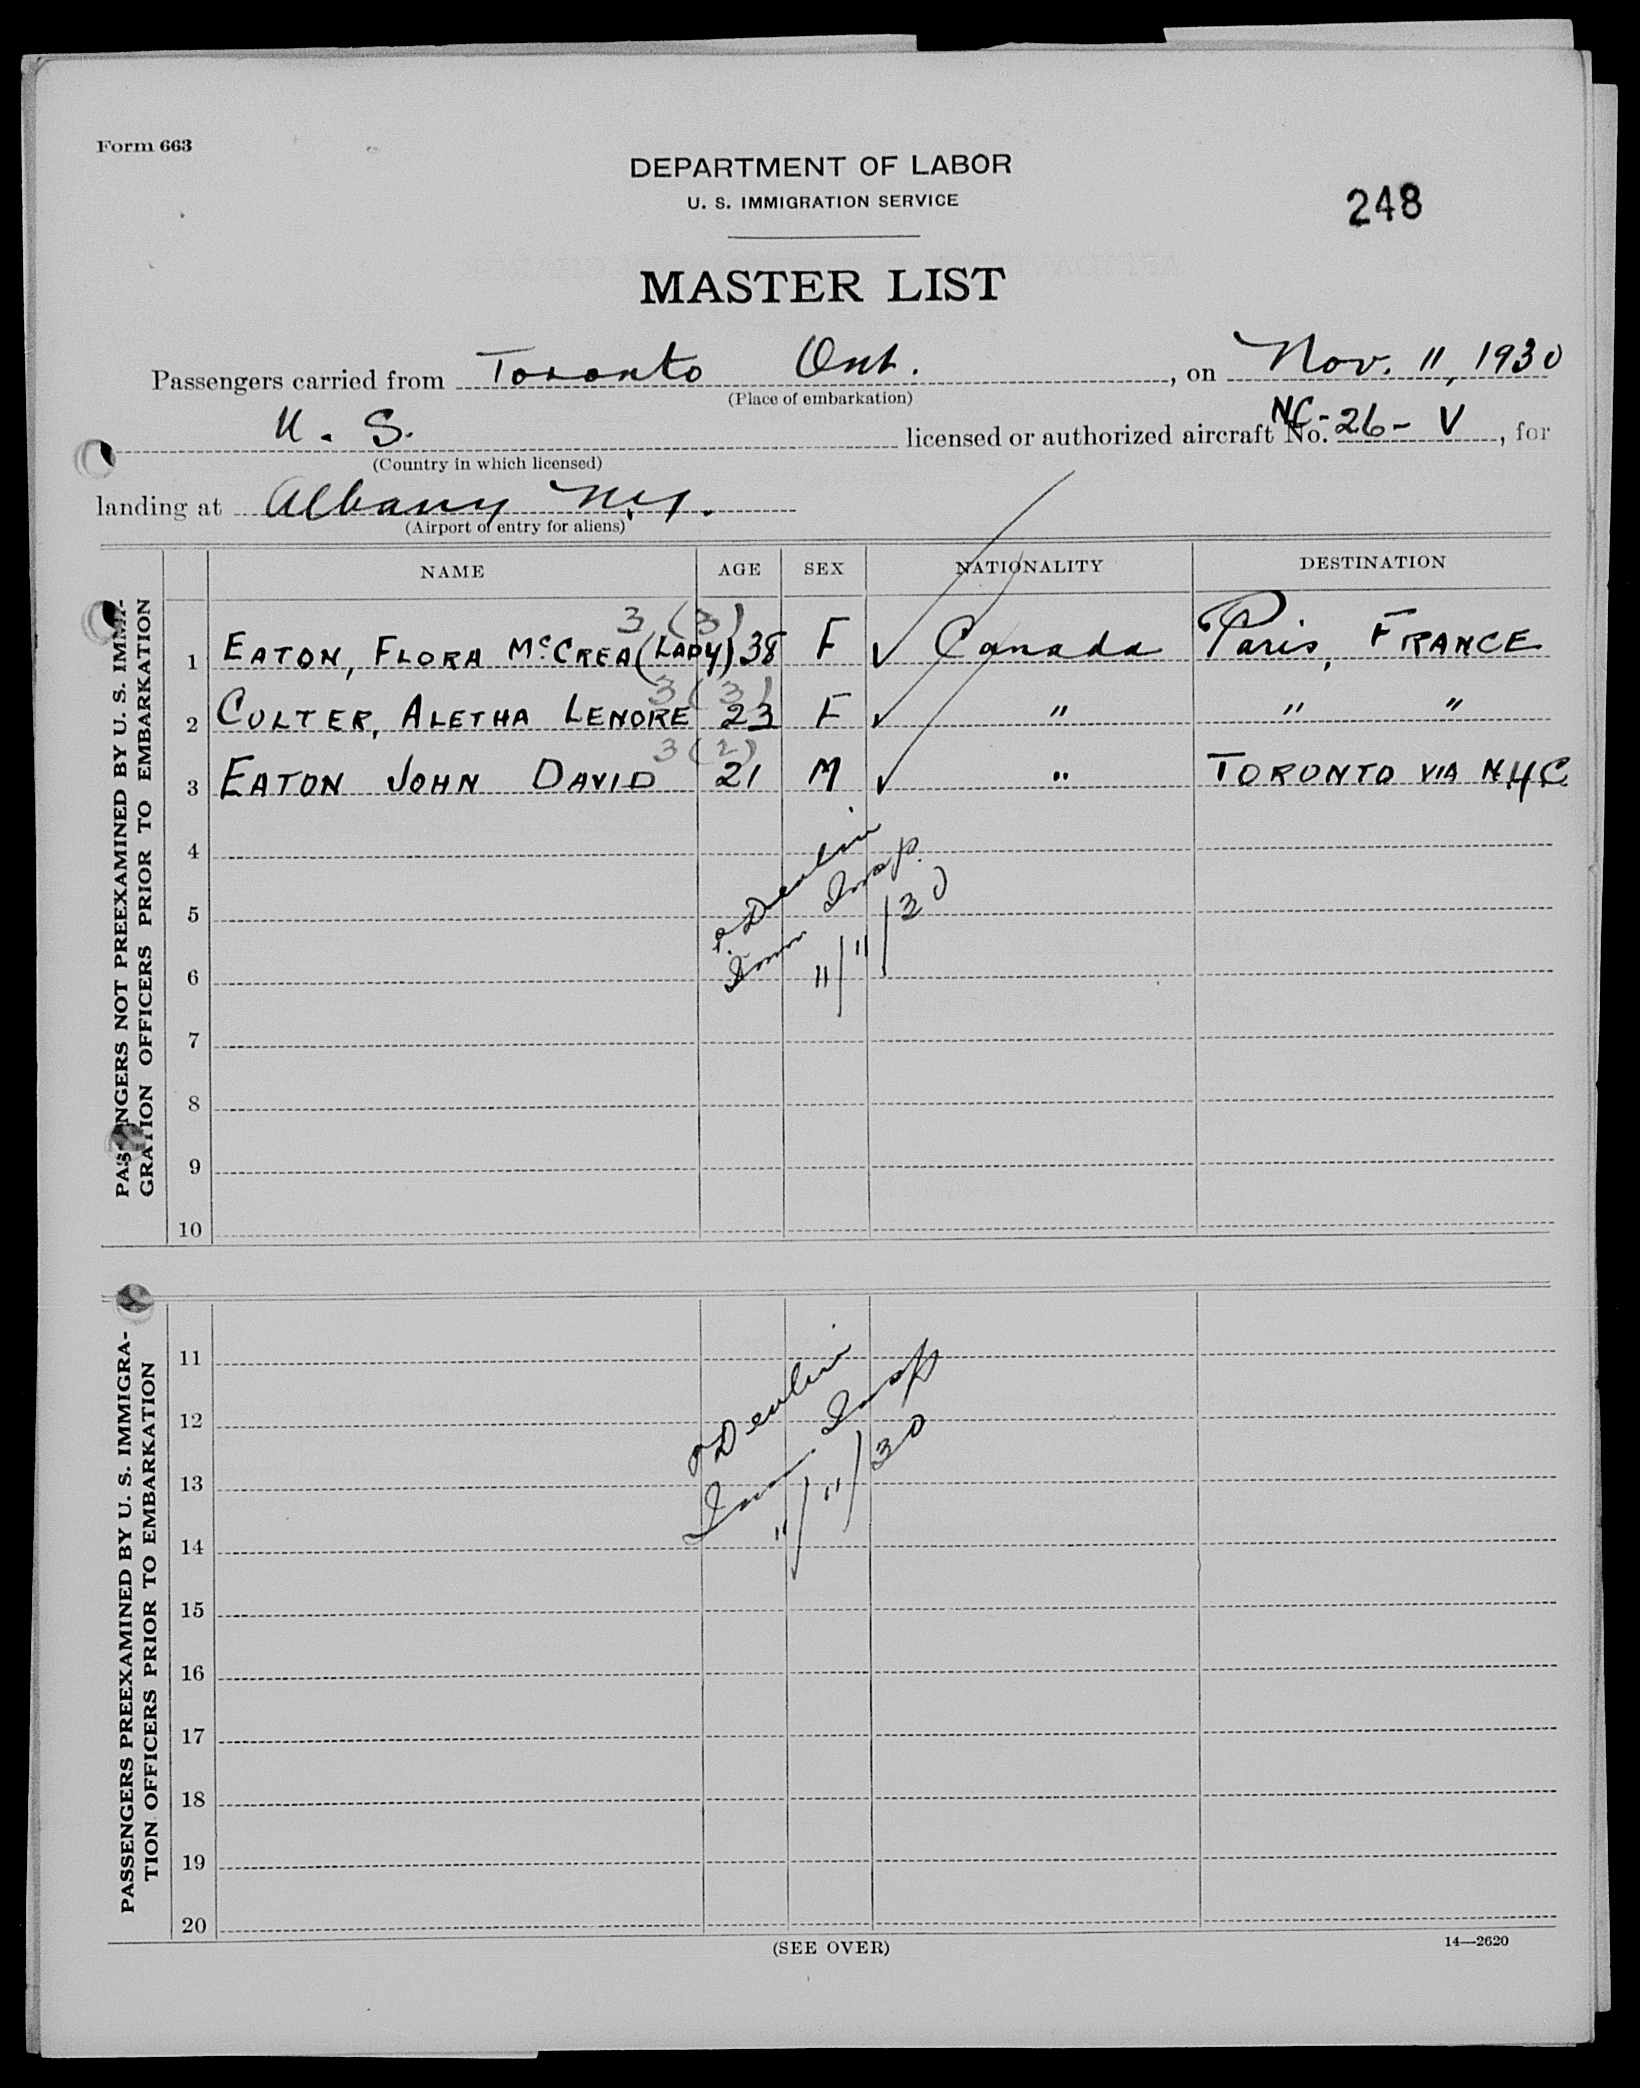 Form 663
DEPARTMENT OF LABOR
U. S. IMMIGRATION SERVICE
248
MASTER LIST
Passengers carried from Toronto Ont. , on Nov. 11, 1930
(Place of embarkation)
U. S. licensed or authorized aircraft No. NC-26-V , for
(Country in which licensed)
landing at Albany N.Y.
(Airport of entry for aliens)
NAME AGE SEX NATIONALITY DESTINATION
PASSENGERS NOT PREEXAMINED BY U. S. IMMI-
GRATION OFFICERS PRIOR TO EMBARKATION
3 (3)
1 EATON, FLORA McCREA (LADY) 38 F ✓ Canada Paris, FRANCE
3 (3)
2 COLTER, ALETHA LENORE 23 F ✓ " " "
3 (2)
3 EATON JOHN DAVID 21 M ✓ " TORONTO VIA N.Y.C.
4
5
6
7
8
9
10
P. Devlin
Imm Insp.
11/11/30
PASSENGERS PREEXAMINED BY U. S. IMMIGRA-
TION OFFICERS PRIOR TO EMBARKATION
11
12
13
14
15
16
17
18
19
20
P Devlin
Imm. Insp
11/11/30
(SEE OVER)
14—2620